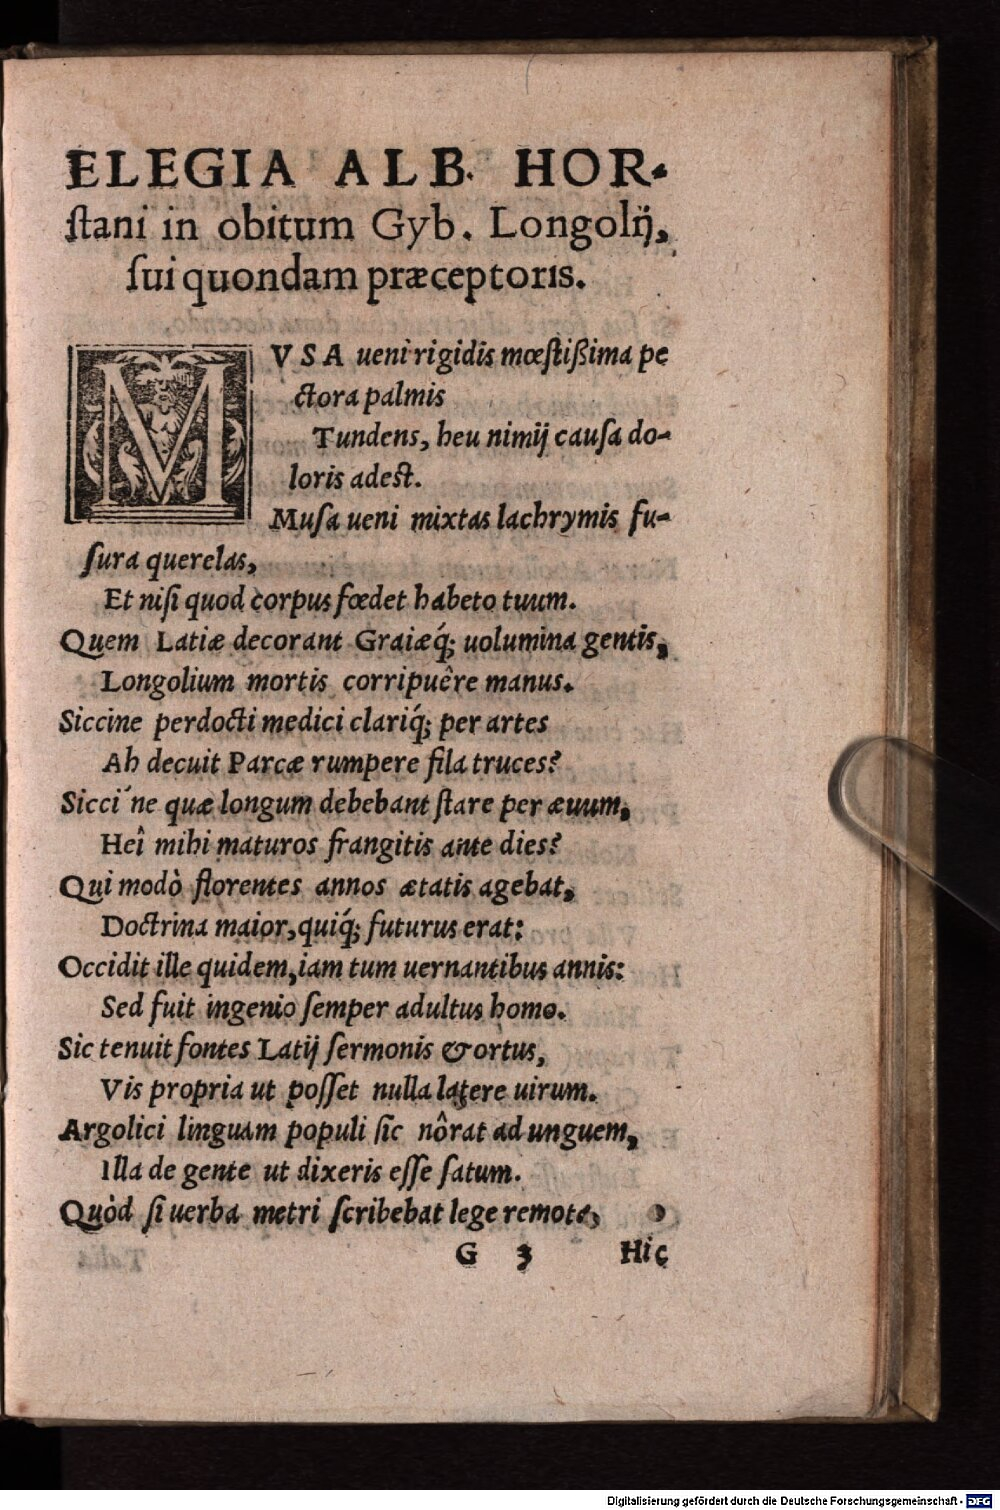 ELEGIA ALB. HOR-
stani in obitum Gyb. Longolij,
sui quondam præceptoris.
MVSA ueni rigidis mœstißima pe
ctora palmis
Tundens, heu nimij causa do-
loris adest.
Musa ueni mixtas lachrymis fu-
sura querelas,
Et nisi quod corpus fœdet habeto tuum.
Quem Latiæ decorant Graiæq́; uolumina gentis,
Longolium mortis corripuêre manus.
Siccine perdocti medici clariq́; per artes
Ah decuit Parcæ rumpere fila truces?
Sicci´ne quæ longum debebant stare per æuum,
Heî mihi maturos frangitis ante dies?
Qui modò florentes annos ætatis agebat,
Doctrina maior, quiq́; futurus erat:
Occidit ille quidem, iam tum uernantibus annis:
Sed fuit ingenio semper adultus homo.
Sic tenuit fontes Latij sermonis & ortus,
Vis propria ut posset nulla latere uirum.
Argolici linguam populi sic nôrat ad unguem,
Illa de gente ut dixeris esse satum.
Quòd si uerba metri scribebat lege remota,
G 3 Hic
Digitalisierung gefördert durch die Deutsche Forschungsgemeinschaft - DFG